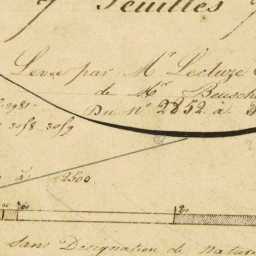 7 Feuilles
Levé par Mr Lecluze
de Mr Beusch
Du No 2852 à 3
3058 3059
à 2500
Sans Designation de Natur